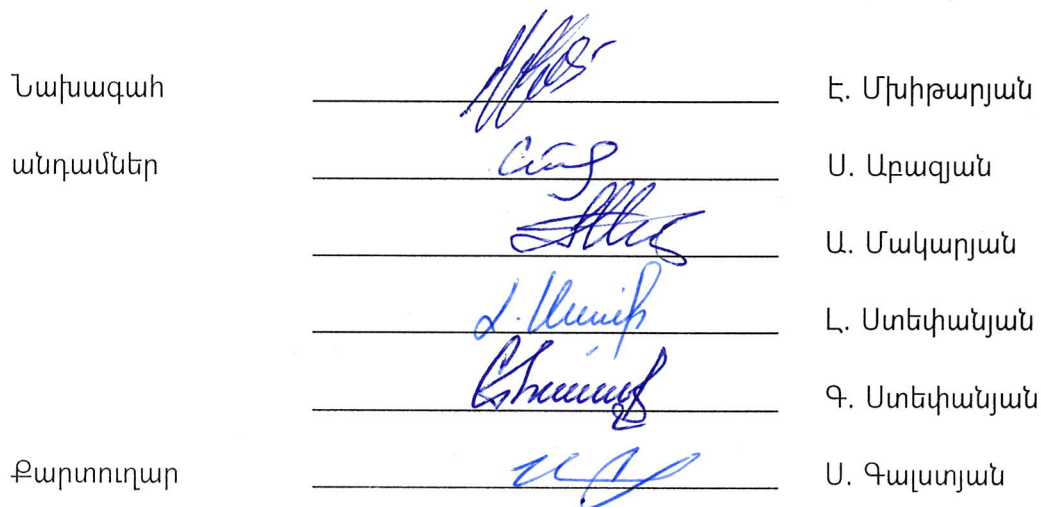 Նախագահ Է. Մխիթարյան
անդամներ Ս. Աբազյան
Ա. Մակարյան
Լ. Ստեփանյան
Գ. Ստեփանյան
Քարտուղար Ս. Գալստյան